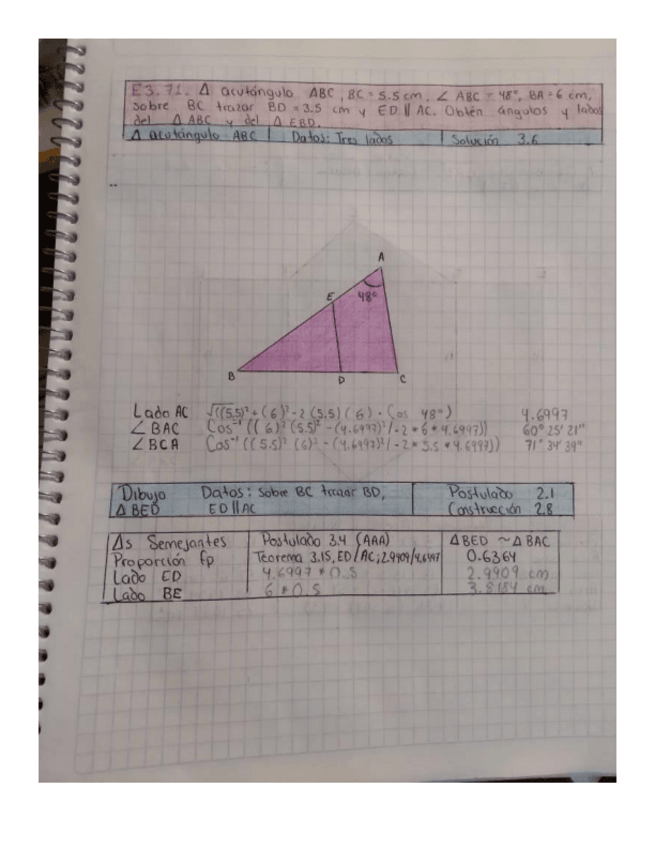 E3.71. Δ acutángulo ABC, BC = 5.5 cm, ∠ ABC = 48°, BA = 6 cm,
sobre BC trazar BD = 3.5 cm y ED || AC. Obtén ángulos y lados
del Δ ABC y del Δ EBD.
Δ acutángulo ABC Datos: Tres lados Solución 3.6
A
E 48°
B D C
Lado AC √((5.5)² + (6)² - 2 (5.5) (6) · Cos 48°) 4.6997
∠ BAC Cos⁻¹ ((6)² (5.5)² - (4.6997)² / -2 * 6 * 4.6997)) 60° 25' 21"
∠ BCA Cos⁻¹ ((5.5)² (6)² - (4.6997)² / -2 * 5.5 * 4.6997)) 71° 34' 39"
Dibujo Datos: Sobre BC trazar BD, Postulado 2.1
Δ BED ED || AC Construcción 2.8
Δs Semejantes Postulado 3.4 (AAA) Δ BED ~ Δ BAC
Proporción fp Teorema 3.15, ED/AC; 2.9909/4.6997 0.6364
Lado ED 4.6997 * 0.5 2.9909 cm
Lado BE 6 * 0.5 3.8184 cm